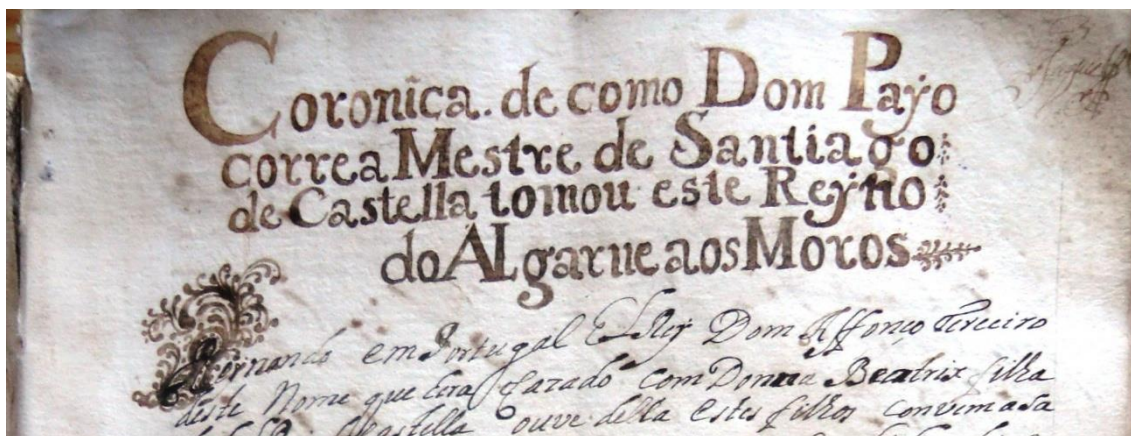 Coronica. de como Dom Payo
correa Mestre de Santiago
de Castella tomou este Reyno
do ALgarue aos Moros
em Portugal ELRey Dom Affonço Terceiro
deste Nome que Era cazado com Donna Beatrix filha
Castella ouve della Estes filhos convem asa